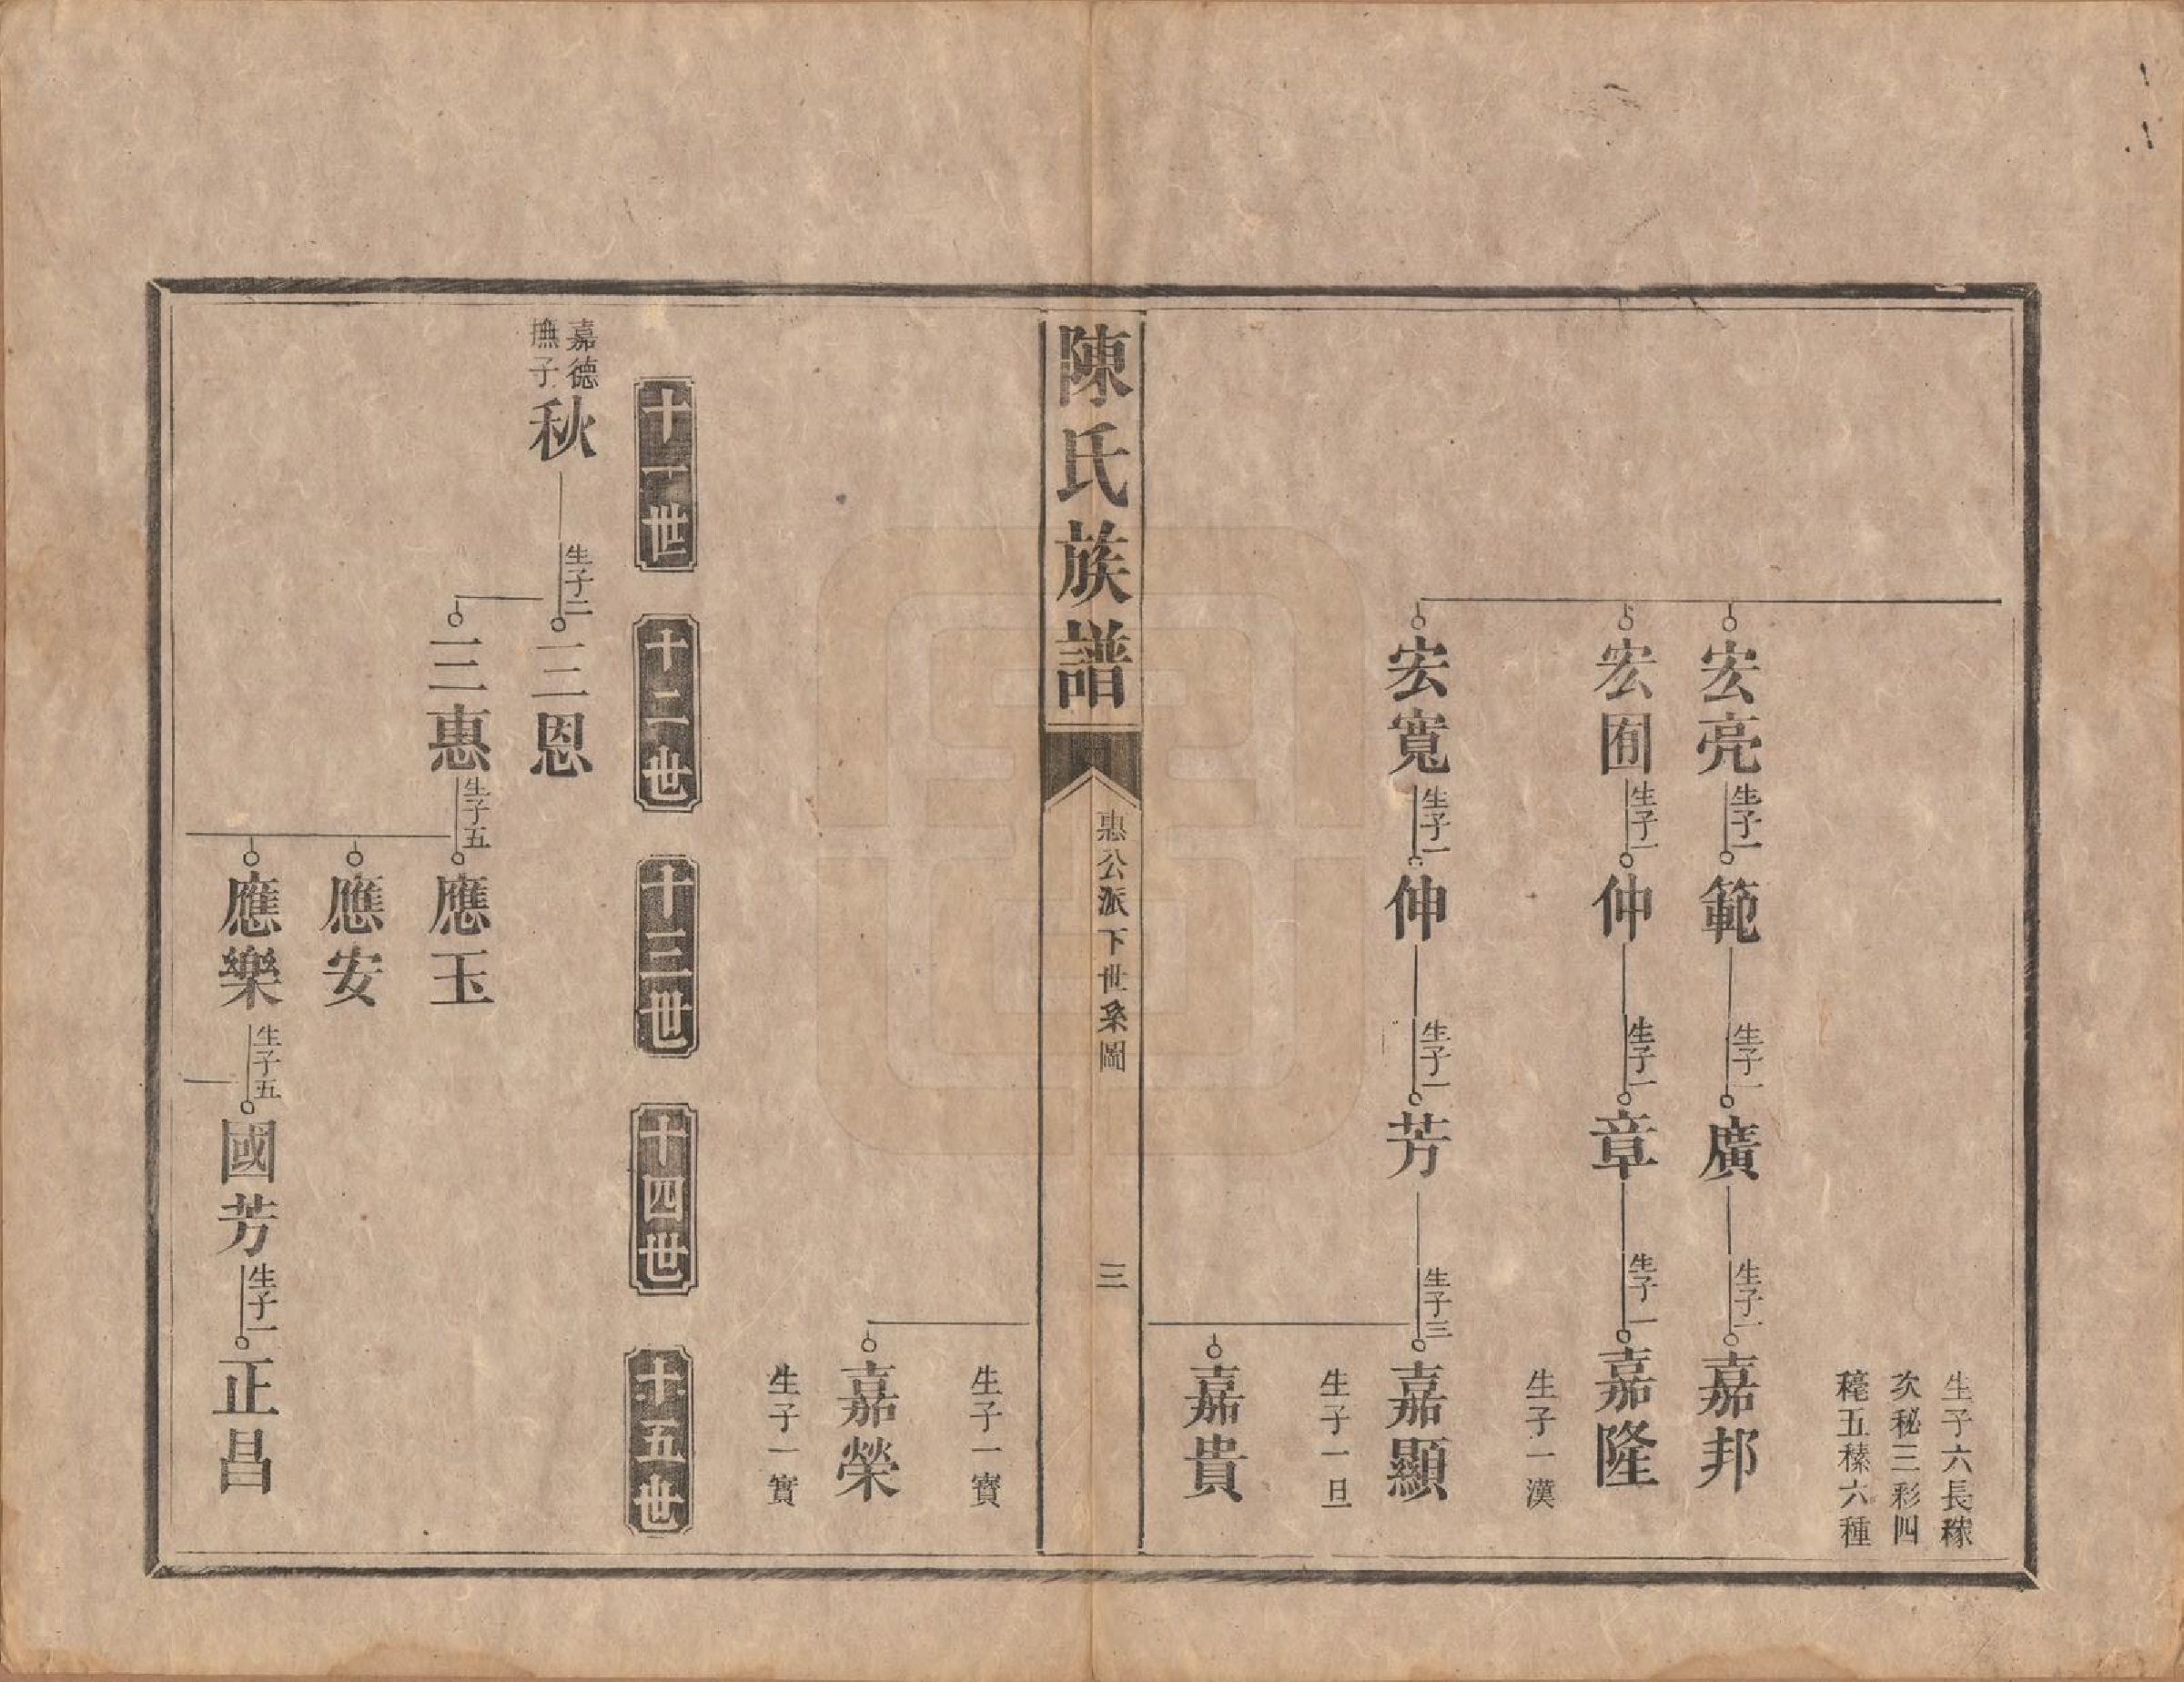 生子六長稼
次秘三彩四
䅐五𥡴六種
宏亮
生子一
範
生子一
廣
生子一
嘉邦
宏囿
生子一
仲
生子一
章
生子一
嘉隆
生子一漢
宏寬
生子一
伸
生子一
芳
生子三
嘉顯
生子一旦
嘉貴
陳氏族譜
惠公派下世系圖
三
生子一寶
嘉榮
生子一實
十一世
十二世
十三世
十四世
十五世
嘉德
撫子
秋
生子二
三恩
三惠
生子五
應玉
應安
應樂
生子五
國芳
生子一
正昌